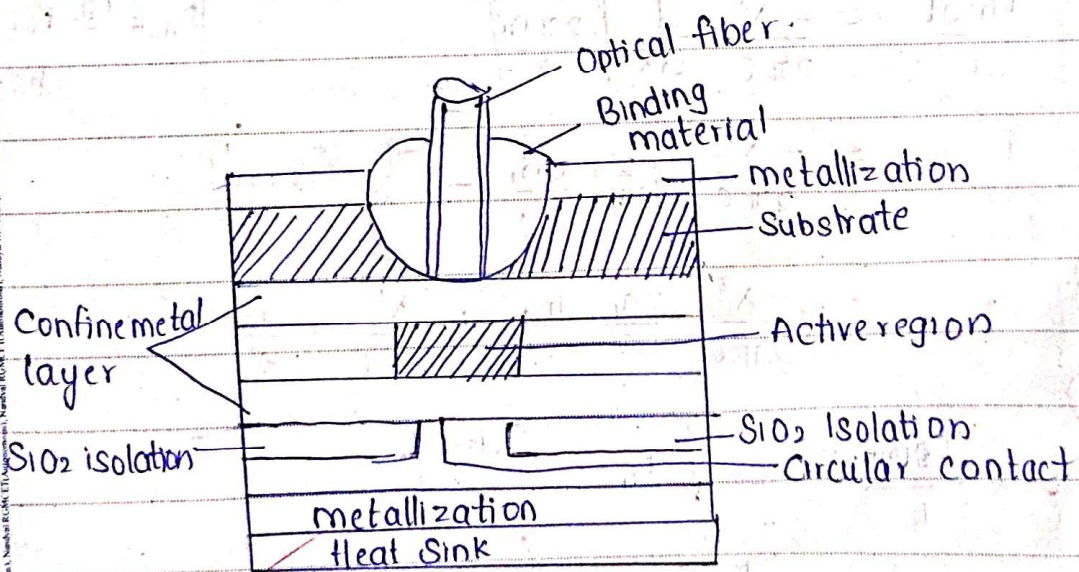 Optical fiber.
Binding
material
metallization
Substrate
Confinemetal
layer
Active region
SiO2 isolation
SiO2 Isolation
Circular contact
metallization
Heat Sink